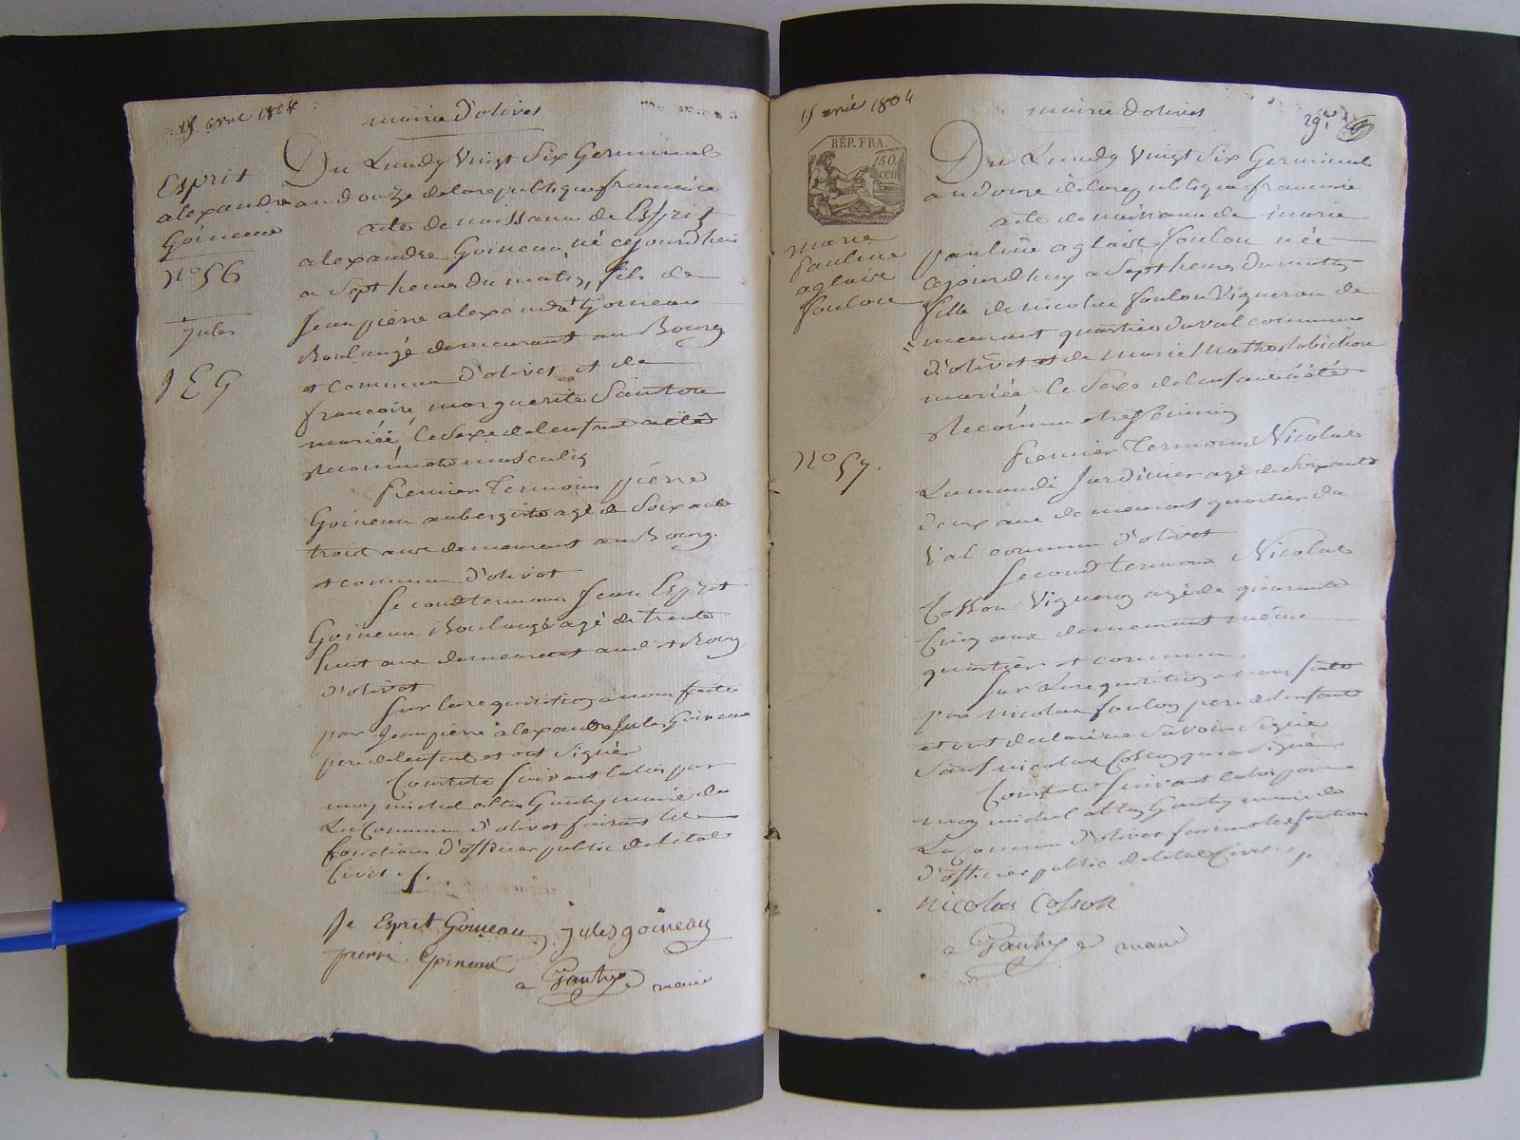 avril 1804
mairie d'olivet
Esprit
alexandre
Goineau
No 56
jules
J E G
Du Lundy Vingt Six Germinal
an douze de la republique francaise
acte de naissance de Esprit
alexandre Goineau né cejourdhui
a Sept heures du matin, fils de
Jean pierre alexandre Goineau
Boulangé demeurant au Bourg
et commune d'olivet et de
francoise marguerite
mariée, le Sexe de l'enfant a été
Reconnu etre masculin
Premier temoin pierre
Goineau aubergiste agé de Soixante
trois ans demeurant au Bourg
et commune d'olivet
Second temoin Jean Esprit
Goineau Boulangé agé de trente
huit ans demeurant audit Bourg
d'olivet
Sur la requisition a nous faite
par Jean pierre alexandre Jules Goineau
pere de l'enfant et ont Signé
Constaté Suivant la loi par
moy michel Gautry maire de
La Commune d'olivet faisant les
fonctions d'officier public de l'etat
Civil
Je Esprit Goineau jules goineau
pierre Goineau
a Gautry maire
15 avril 1804
mairie d'olivet
RÉP. FRA.
50
marie
Pauline
aglaée
foulon
No 57.
Du Lundy Vingt Six Germinal
an douze de la republique francaise
acte de naissance de marie
pauline aglaée foulon née
cejourdhuy a Sept heures du matin
fille de nicolas foulon Vigneron de
meurant quartier du val commune
d'olivet et de marie
mariée le Sexe de l'enfant a été
Reconnu etre feminin
Premier temoin Nicolas
Jardinier agé de Soixante
deux ans demeurant quartier du
Val commune d'olivet
Second temoin Nicolas
Cosson Vigneron agé de quarante
Cinq ans demeurant même
quartier et commune
Sur La requisition a nous faite
par nicolas foulon pere de l'enfant
et ont declaré ne Savoir Signer
Sauf nicolas Cosson qui a Signé
Constaté Suivant la loi par
moy michel Gautry maire de
La commune d'olivet faisant les fonction
d'officier public de l'etat Civil
nicolas Cosson
a Gautry maire